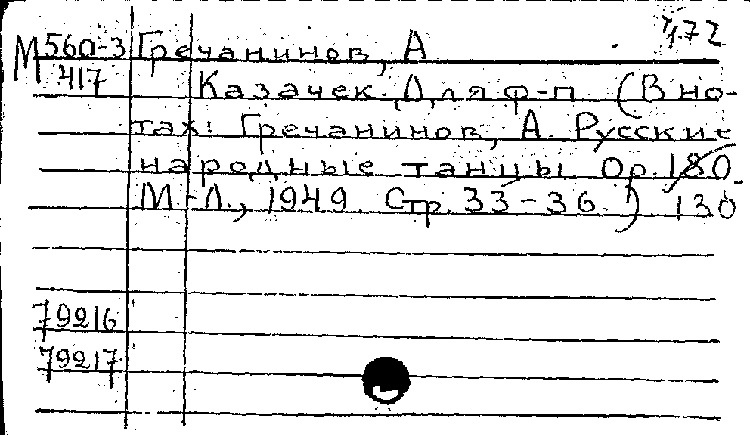 М 560-3 Гречанинов, А 1/172
417 Казачек. Для ф-п (В но-
тах: Гречанинов, А. Русские
народные танцы. Ор. 180
М-Л., 1949. Стр. 33-36.) 130
79216
79217